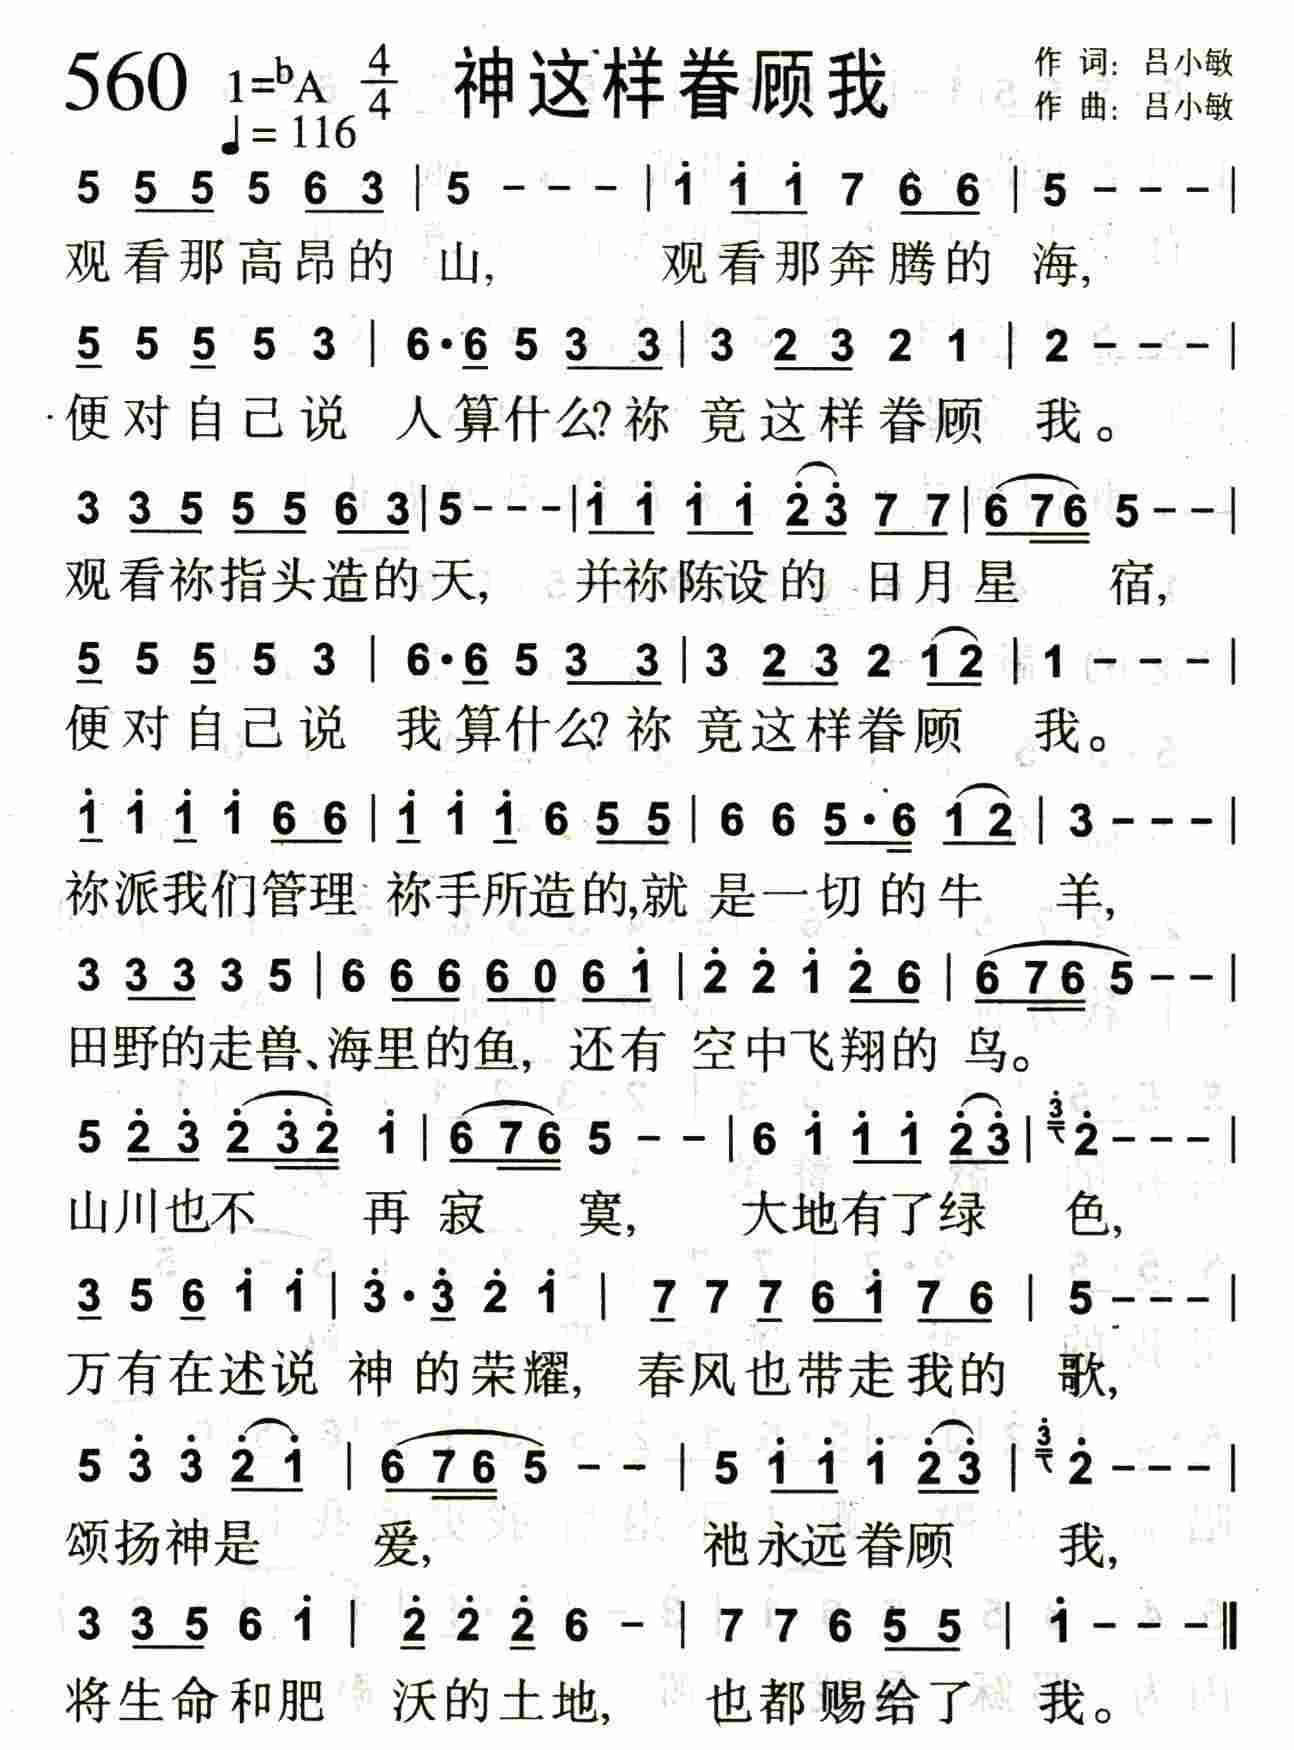 560 1=ᵇA 4/4 神这样眷顾我 作 词：吕小敏
♩= 116 作 曲：吕小敏
5 5 5 5 6 3 | 5 - - - | i i i 7 6 6 | 5 - - - |
观看那高昂的 山, 观看那奔腾的 海,
5 5 5 5 3 | 6·6 5 3 3 | 3 2 3 2 1 | 2 - - - |
便对自己说 人算什么?祢 竟这样眷顾 我。
3 3 5 5 5 6 3 | 5 - - - | i i i i 2̇ 3̇ 7 7 | 6 7 6 5 - - |
观看祢指头造的天, 并祢陈设的 日月星 宿,
5 5 5 5 3 | 6·6 5 3 3 | 3 2 3 2 1 2 | 1 - - - |
便对自己说 我算什么?祢 竟这样眷顾 我。
i i i i 6 6 | i i i 6 5 5 | 6 6 5·6 1 2 | 3 - - - |
祢派我们管理 祢手所造的,就 是一切的牛 羊,
3 3 3 3 5 | 6 6 6 6 0 6 i | 2̇ 2̇ i 2̇ 6 | 6 7 6 5 - - |
田野的走兽、海里的鱼, 还有 空中飞翔的 鸟。
5 2̇ 3̇ 2̇ 3̇ 2̇ i | 6 7 6 5 - - | 6 i i i 2̇ 3̇ | 3̇ 2̇ - - - |
山川也不 再 寂 寞, 大地有了绿 色,
3 5 6 i i | 3̇·3̇ 2̇ i | 7 7 7 6 i 7 6 | 5 - - - |
万有在述说 神 的荣耀, 春风也带走我的 歌,
5 3̇ 3̇ 2̇ i | 6 7 6 5 - - | 5 i i i 2̇ 3̇ | 3̇ 2̇ - - - |
颂扬神是 爱, 祂永远眷顾 我,
3 3 5 6 i | 2̇ 2̇ 2̇ 6 - | 7 7 6 5 5 | i - - - ‖
将生命和肥 沃的土地, 也都赐给了 我。